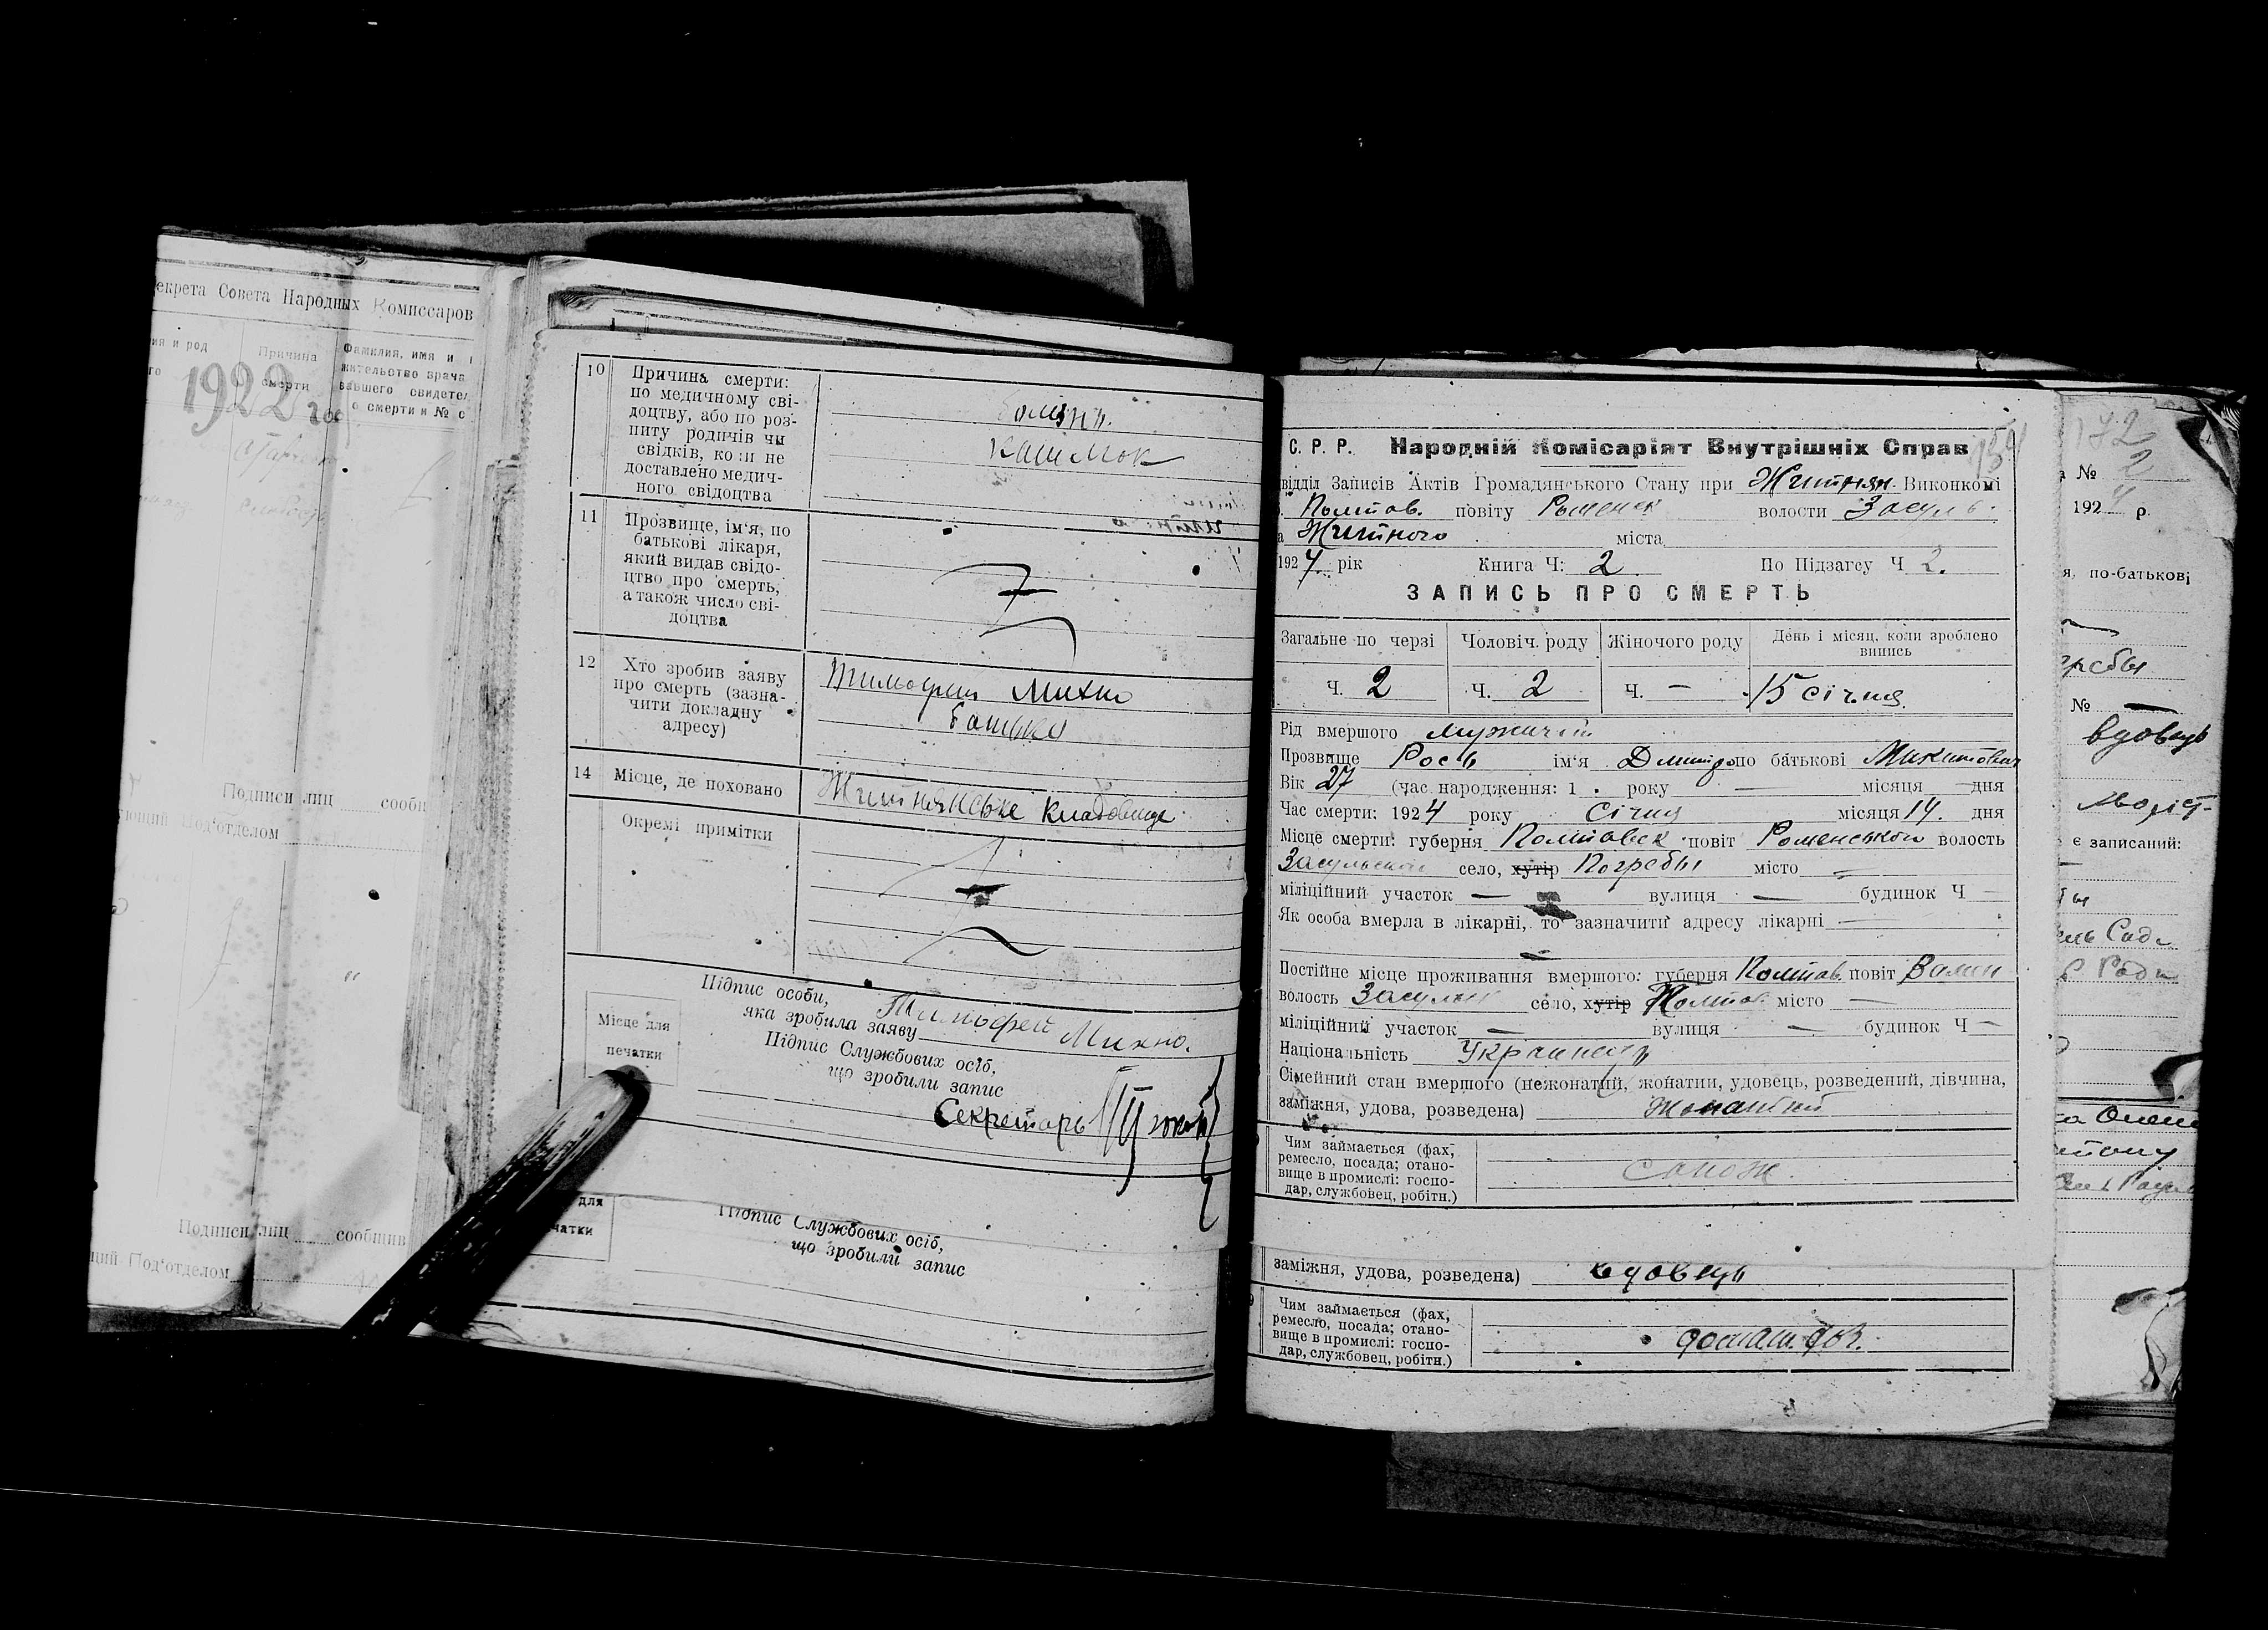 екрета Совета Народных Комиссаров
ия и род
го
Причина
смерти
Фамилия, имя и
жительство врача
вавшего свидетел
о смерти и № с
1922 год
Подписи лиц сообщ
ующий Под'отделом
Подписи лиц сообщив
щий Под'отделом
10
Причина смерти:
по медичному сві-
доцтву, або по роз-
питу родичів чи
свідків, коли не
доставлено медич-
ного свідоцтва
кашлюк
11
Прозвище, ім'я, по
батькові лікаря,
який видав свідо-
цтво про смерть,
а також число сві-
доцтва
12
Хто зробив заяву
про смерть (зазна-
чити докладну
адресу)
Тимофей Михно
батько
14
Місце, де поховано
Житнянське кладовище
Окремі примітки
Підпис особи,
яка зробила заяву Тимофей Михно.
Місце для
печатки
Підпис Службових осіб,
що зробили запис
Секретарь
для
чатки
Підпис Службових осіб,
що зробили запис
154
С. Р. Р. Народній Комісаріят Внутрішніх Справ
відділ Записів Актів Громадянського Стану при Житнян. Виконкомі
Полтав. повіту Роменск волости Засуль.
а Житного міста
1924 рік Книга Ч: 2 По Підзагсу Ч 2.
ЗАПИСЬ ПРО СМЕРТЬ
Загальне по черзі
Чоловіч. роду
Жіночого роду
День і місяц, коли зроблено
випись
Ч. 2
Ч. 2
Ч. —
15 січня
Рід вмершого мужичий
Прозвище Рось ім'я Дмитро по батькові Микитович
Вік 27 (час народження: 1 . року — місяця — дня
Час смерти: 1924 року Січня місяця 14. дня
Місце смерти: губерня Полтавск повіт Роменськой волость
Засульской село, хутір Погребы місто —
міліційний участок — вулиця — будинок Ч —
Як особа вмерла в лікарні, то зазначити адресу лікарні —
Постійне місце проживання вмершого: губерня Полтав. повіт
волость Засульск село, хутір місто —
міліційний участок — вулиця — будинок Ч —
Національність Украинець
Сімейний стан вмершого (нежонатий, жонатий, удовець, розведений, дівчина,
заміжня, удова, розведена) Жонатий
Чим займається (фах,
ремесло, посада; отано-
вище в промислі: госпо-
дар, службовец, робітн.)
сапож
заміжня, удова, розведена) вдовець
9
Чим займається (фах,
ремесло, посада; отано-
вище в промислі: госпо-
дар, службовец, робітн.)
172
а № 2
1924 р.
я, по-батькові
гребы
№ —
вдовець
є записаний: